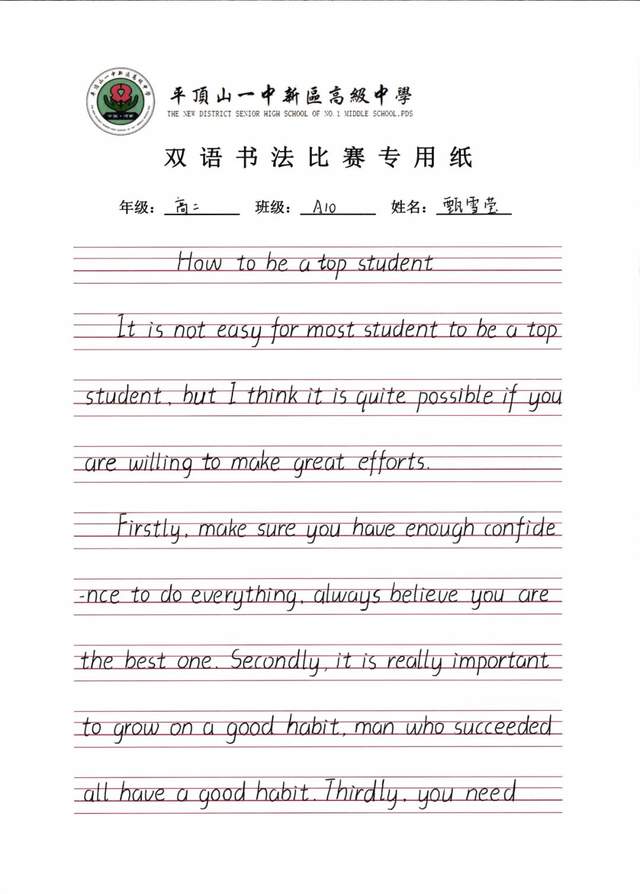 平頂山一中新區高級中學
THE NEW DISTRICT SENIOR HIGH SCHOOL OF NO.1 MIDDLE SCHOOL.PDS
双语书法比赛专用纸
年级: 高二 班级: A10 姓名: 甄雪莹
How to be a top student
It is not easy for most student to be a top
student, but I think it is quite possible if you
are willing to make great efforts.
Firstly, make sure you have enough confide
-nce to do everything, always believe you are
the best one. Secondly, it is really important
to grow on a good habit, man who succeeded
all have a good habit. Thirdly, you need